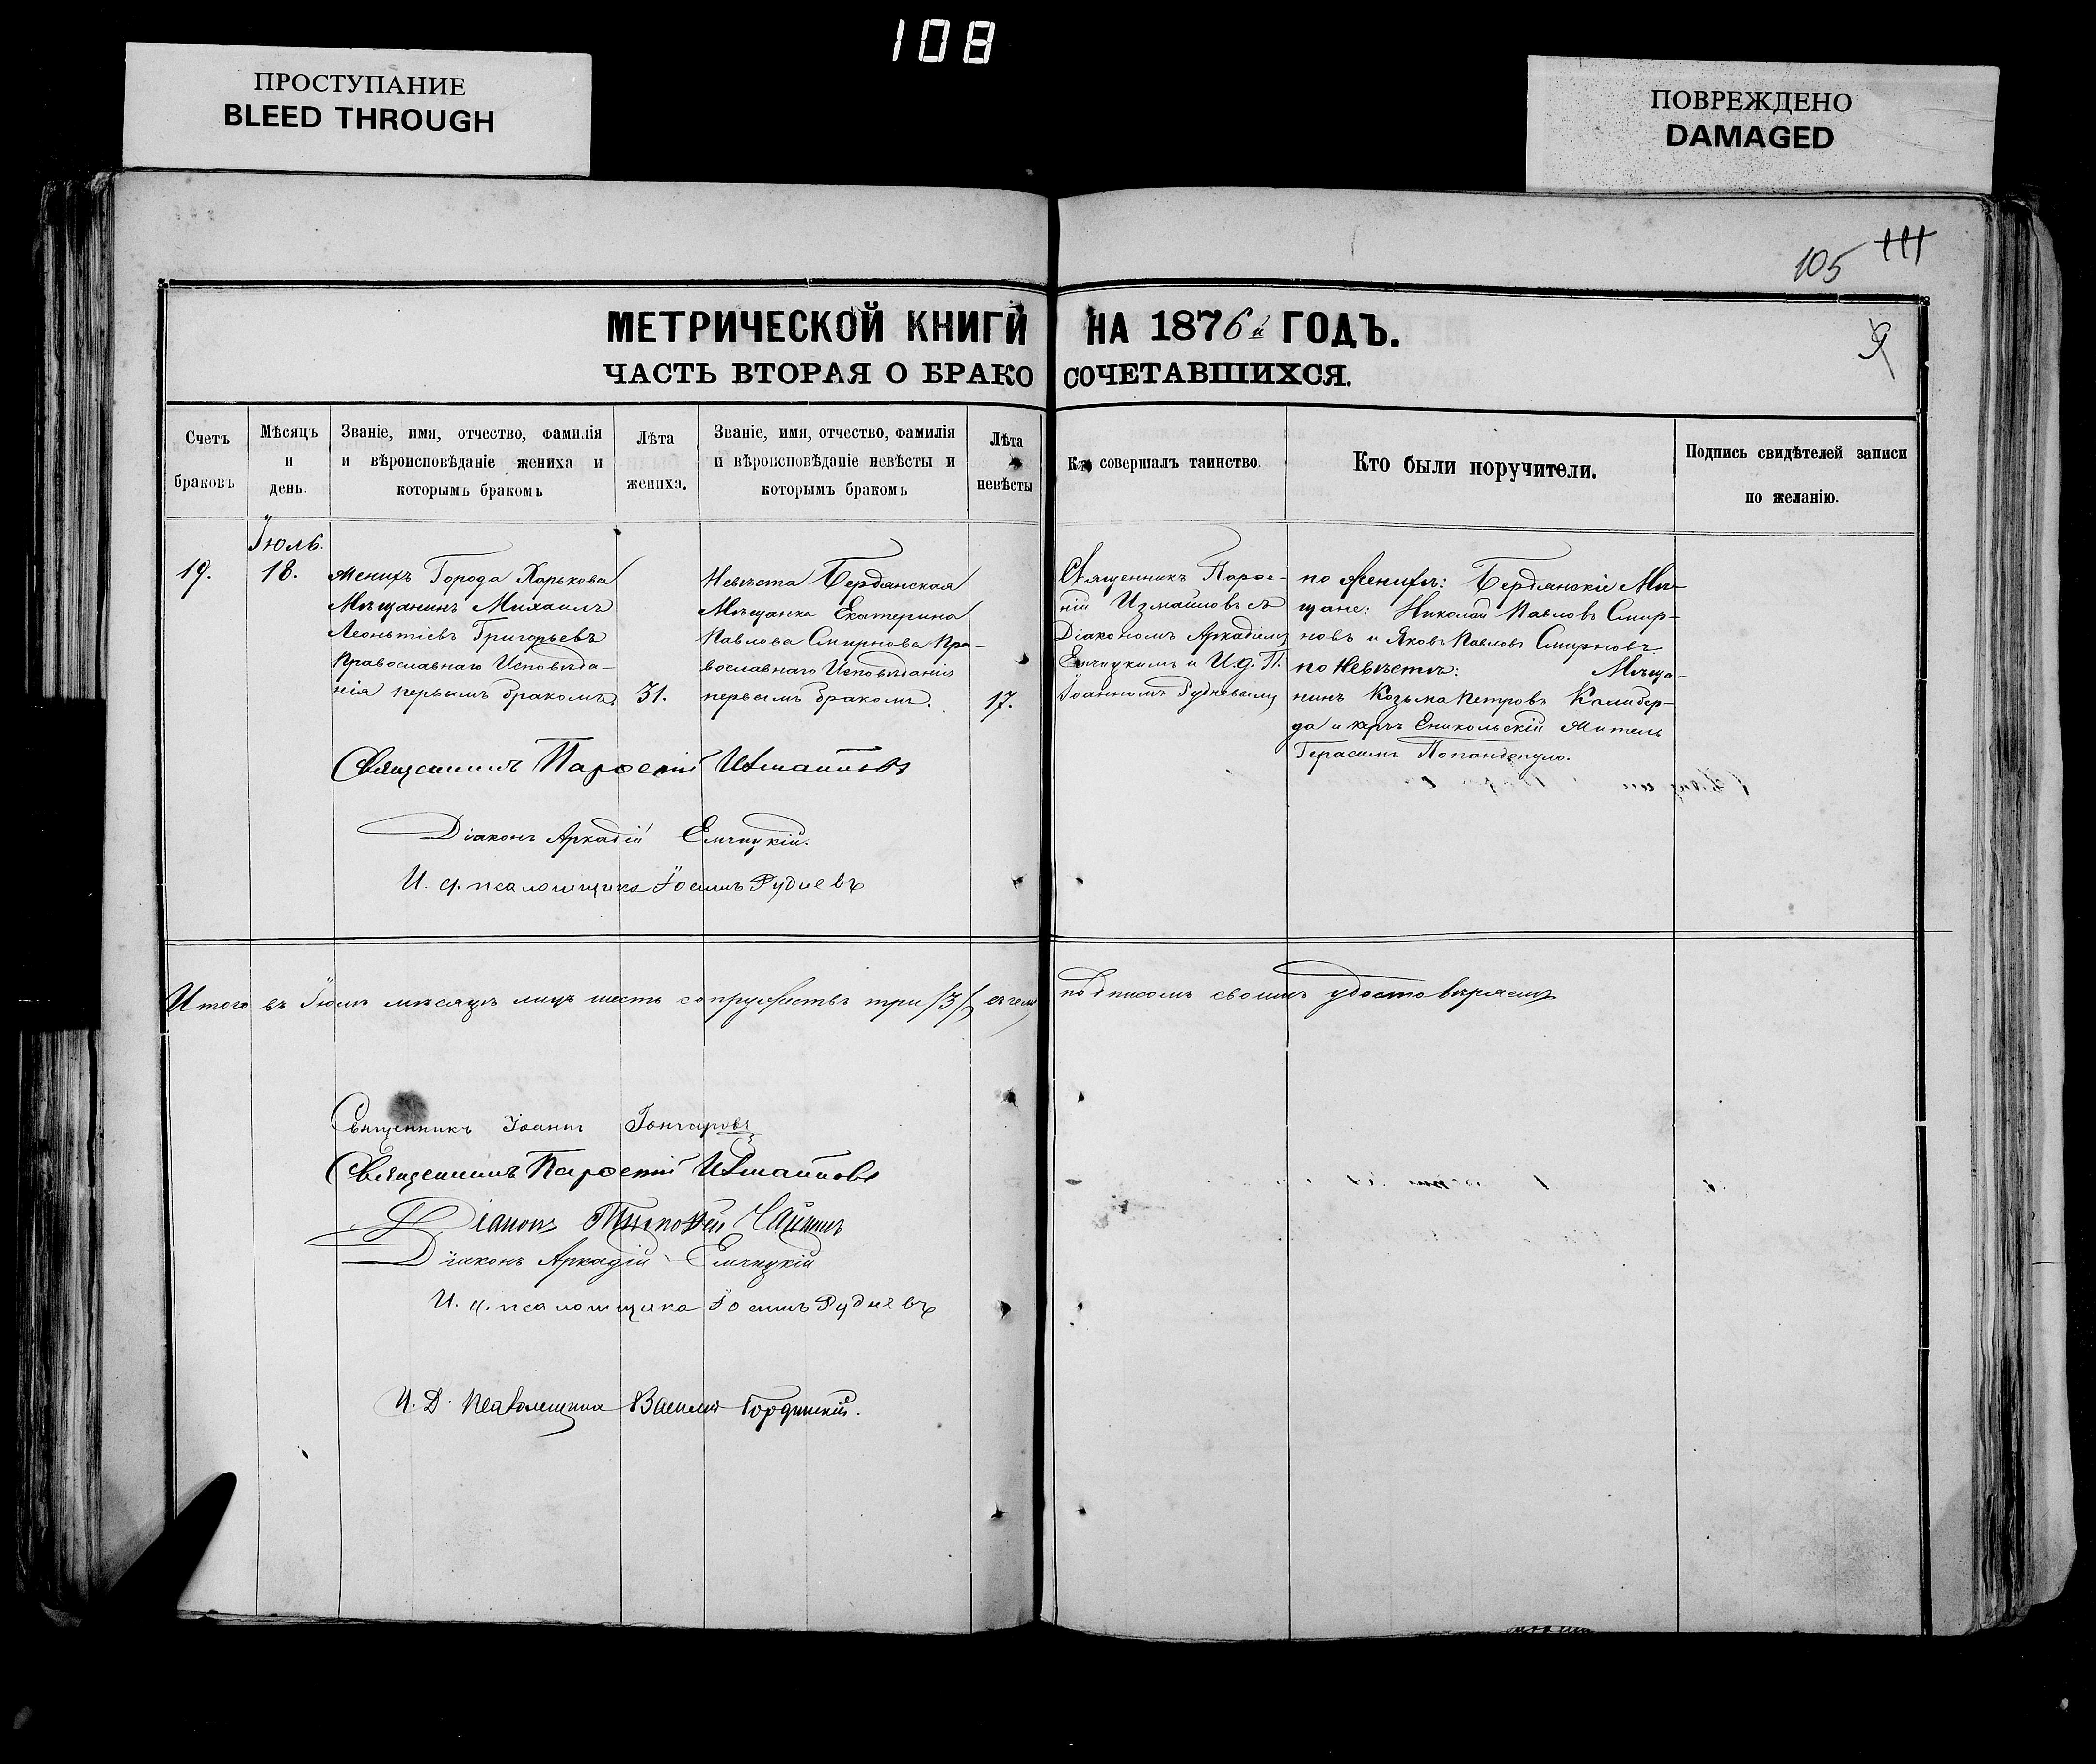 108
ПРОСТУПАНИЕ
BLEED THROUGH
ПОВРЕЖДЕНО
DAMAGED
105 111
МЕТРИЧЕСКОЙ КНИГИ НА 1876й ГОДЪ.
ЧАСТЬ ВТОРАЯ О БРАКОСОЧЕТАВШИХСЯ.
Счетъ
браковъ
Мѣсяцъ
и
день.
Званіе, имя, отчество, фамилія
и вѣроисповѣданіе жениха и
которымъ бракомъ
Лѣта
жениха.
Званіе, имя, отчество, фамилія
и вѣроисповѣданіе невѣсты и
которымъ бракомъ
Лѣта
невѣсты
Кто совершалъ таинство.
Кто были поручители.
Подпись свидѣтелей записи
по желанію.
19.
Іюль.
18.
Женихъ Города Харькова
Мѣщанинъ Михаилъ
Леонтіевъ Григорьевъ
Православнаго Исповѣда-
нія первымъ бракомъ.
31.
Невѣста Бердянская
Мѣщанка Екатерина
Павлова Смирнова Пра-
вославнаго Исповѣданія
первымъ бракомъ.
17.
Священникъ Парѳе-
ній Измаиловъ съ
Діакономъ Аркадіемъ
Емчицкимъ и И.д.П.
Іоанномъ Рудневымъ
по Женихѣ: Бердянскіе Мѣ-
щане: Николай Павловъ Смир-
новъ и Яковъ Павловъ Смирновъ.
по Невѣстѣ: Мѣща-
нинъ Козьма Петровъ Калибер-
да и Керчь Еникольскій Житель
Герасимъ Попандопуло.
Священникъ Парѳеній Измаиловъ
Діаконъ Аркадій Емчицкій.
И. д. псаломщика Іоаннъ Рудневъ
Итого въ Іюлѣ мѣсяцѣ лицъ шесть супружествъ три /3/ въ чемъ подписомъ своимъ удостовѣряемъ
Священникъ Іоаннъ Гончаровъ
Священникъ Парѳеній Измаиловъ
Діаконъ Тимоѳей
Діаконъ Аркадій Емчицкій
И. д. псаломщика Іоаннъ Рудневъ
И. Д. Псаломщика Василій